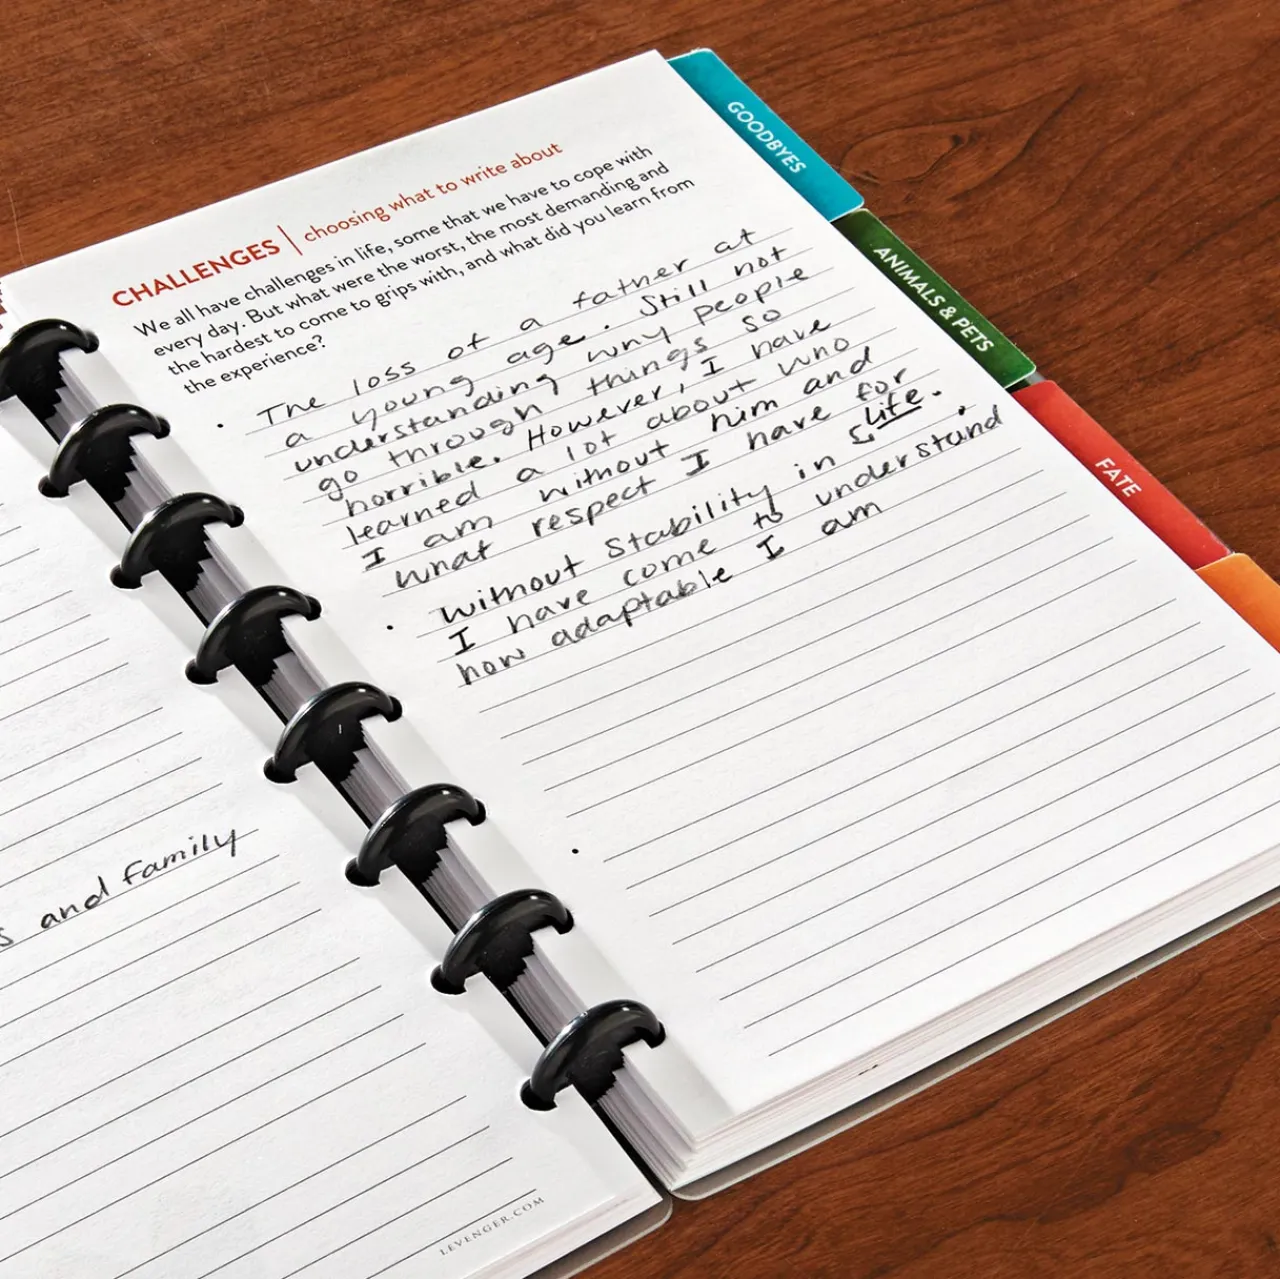 CHALLENGES | choosing what to write about
We all have challenges in life, some that we have to cope with
every day. But what were the worst, the most demanding and
the hardest to come to grips with, and what did you learn from
the experience?
• The loss of a father at
a young age. Still not
understanding why people
go through things so
horrible. However, I have
learned a lot about who
I am without him and
what respect I have for
life.
• Without stability in
I have come to understand
how adaptable I am
•
GOODBYES
ANIMALS & PETS
FATE
s and family
LEVENGER.COM